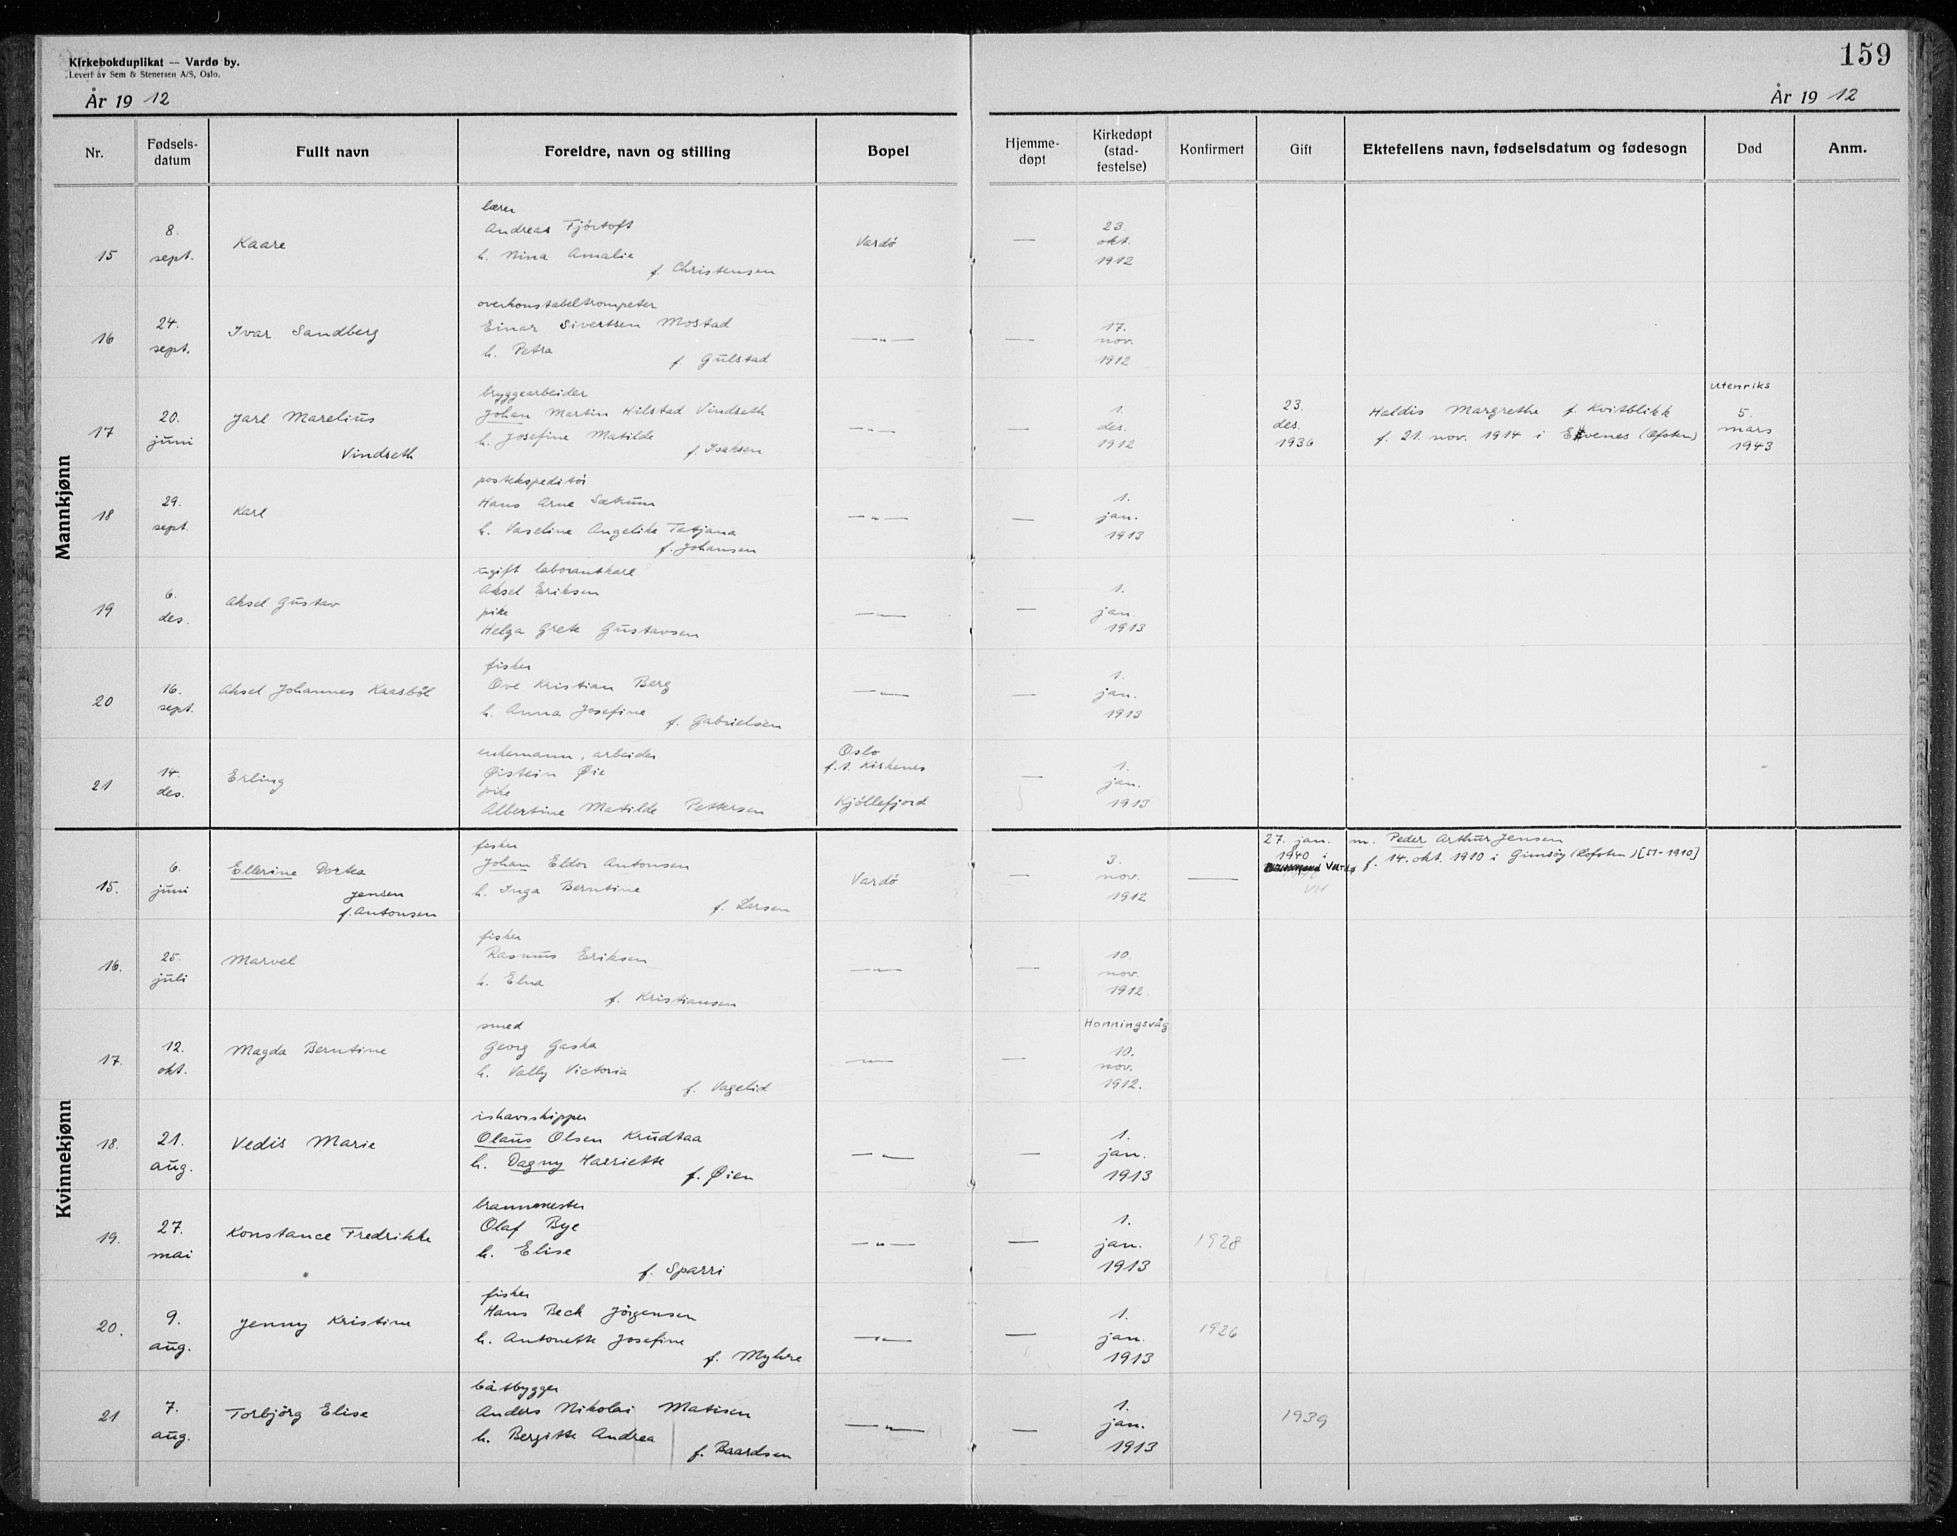 Kirkebokduplikat — Vardø by.
Levert av Sem & Stenersen A/S, Oslo.
År 19 12
159
År 19 12
Nr.
Fødsels-
datum
Fullt navn
Foreldre, navn og stilling
Bopel
Hjemme-
døpt
Kirkedøpt
(stad-
festelse)
Konfirmert
Gift
Ektefellens navn, fødselsdatum og fødesogn
Død
Anm.
Mannkjønn
15
8.
sept.
Kaare
lærer
Andreas Fjörtoft
h. Nina Amalie
f. Christensen
Vardö
—
23.
okt.
1912
16
24.
sept.
Ivar Sandberg
overkonstabeltrompeter
Einar Sivertsen Mostad
h. Petra
f. Gulstad
—„—
—
17.
nov.
1912
17
20.
juni
Jarl Marelius
Vindseth
bryggearbeider
Johan Martin Hilstad Vindseth
h. Josefine Matilde
f. Isaksen
—„—
—
1.
des.
1912
23.
des.
1936
Haldis Margrethe f. Kvitblikk
f. 21. nov. 1914 i Evenes (Ofoten)
utenriks
5.
mars
1943
18
29.
sept.
Karl
postekspeditör
Hans Arne Sætrum
h. Vaseline Angelike Tatjana
f. Johansen
—„—
—
1.
jan.
1913
19
6.
des.
Aksel Gustav
ugift laborantkarl
Aksel Eriksen
pike
Helga Grete Gustavsen
—„—
—
1.
jan.
1913
20
16.
sept.
Aksel Johannes Kaasböl
fisker
Ove Kristian Berg
h. Anna Josefine
f. Gabrielsen
—„—
—
1.
jan.
1913
21
14.
des.
Erling
enkemann, arbeider
Øistein Øie
pike
Albertine Matilde Pettersen
Oslo
f.t. Kirkenes
Kjöllefjord
—
1.
jan.
1913
Kvinnekjønn
15.
6.
juni
Ellerine Dortea
Jensen
f. Antonsen
fisker
Johan Eldor Antonsen
h. Inga Berntine
f. Larsen
Vardö
3.
nov.
1912
—
27. jan.
1940 i
Vardø
VH
m. Peder Arthur Jensen
f. 14. okt. 1910 i Gimsöy (Lofoten) [51-1910]
16.
25.
juli
Marvel
fisker
Rasmus Eriksen
h. Elna
f. Kristiansen
—„—
—
10.
nov.
1912.
17.
12.
okt.
Magda Berntine
smed
Georg Gaska
h. Vally Victoria
f. Vagelid
—„—
—
Honningsvåg
10.
nov.
1912.
18.
21.
aug.
Vedis Marie
ishavsskipper
Olaus Olsen Krudtaa
h. Dagny Harriette
f. Øien
—„—
—
1.
jan.
1913
19.
27.
mai
Konstance Fredrikke
brannmester
Olaf Bye
h. Elise
f. Sparri
—„—
—
1.
jan.
1913
1928
20.
9.
aug.
Jenny Kristine
fisker
Hans Beck Jörgensen
h. Antonette Josefine
f. Myhre
—„—
—
1.
jan.
1913
1926
21
7.
aug.
Torbjörg Elise
båtbygger
Anders Nikolai Matisen
h. Bergitte Andrea
f. Baardsen
—„—
—
1.
jan.
1913
1939